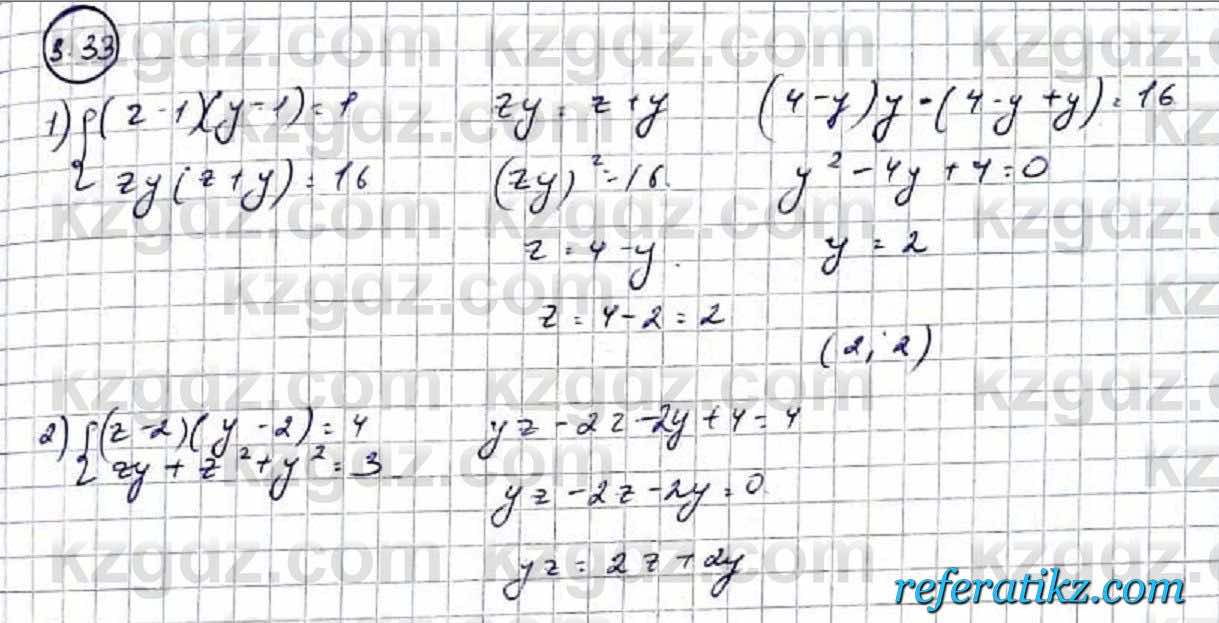 3.33
1) { (z-1)(y-1)=1
zy(z+y)=16
zy=z+y
(zy)²=16.
z=4-y.
z=4-2=2
(4-y)y·(4-y+y)=16
y²-4y+4=0
y=2
(2; 2)
2) { (z-2)(y-2)=4
zy+z²+y²=3
yz-2z-2y+4=4
yz-2z-2y=0
yz=2z+2y
kzgdz.com
referatikz.com